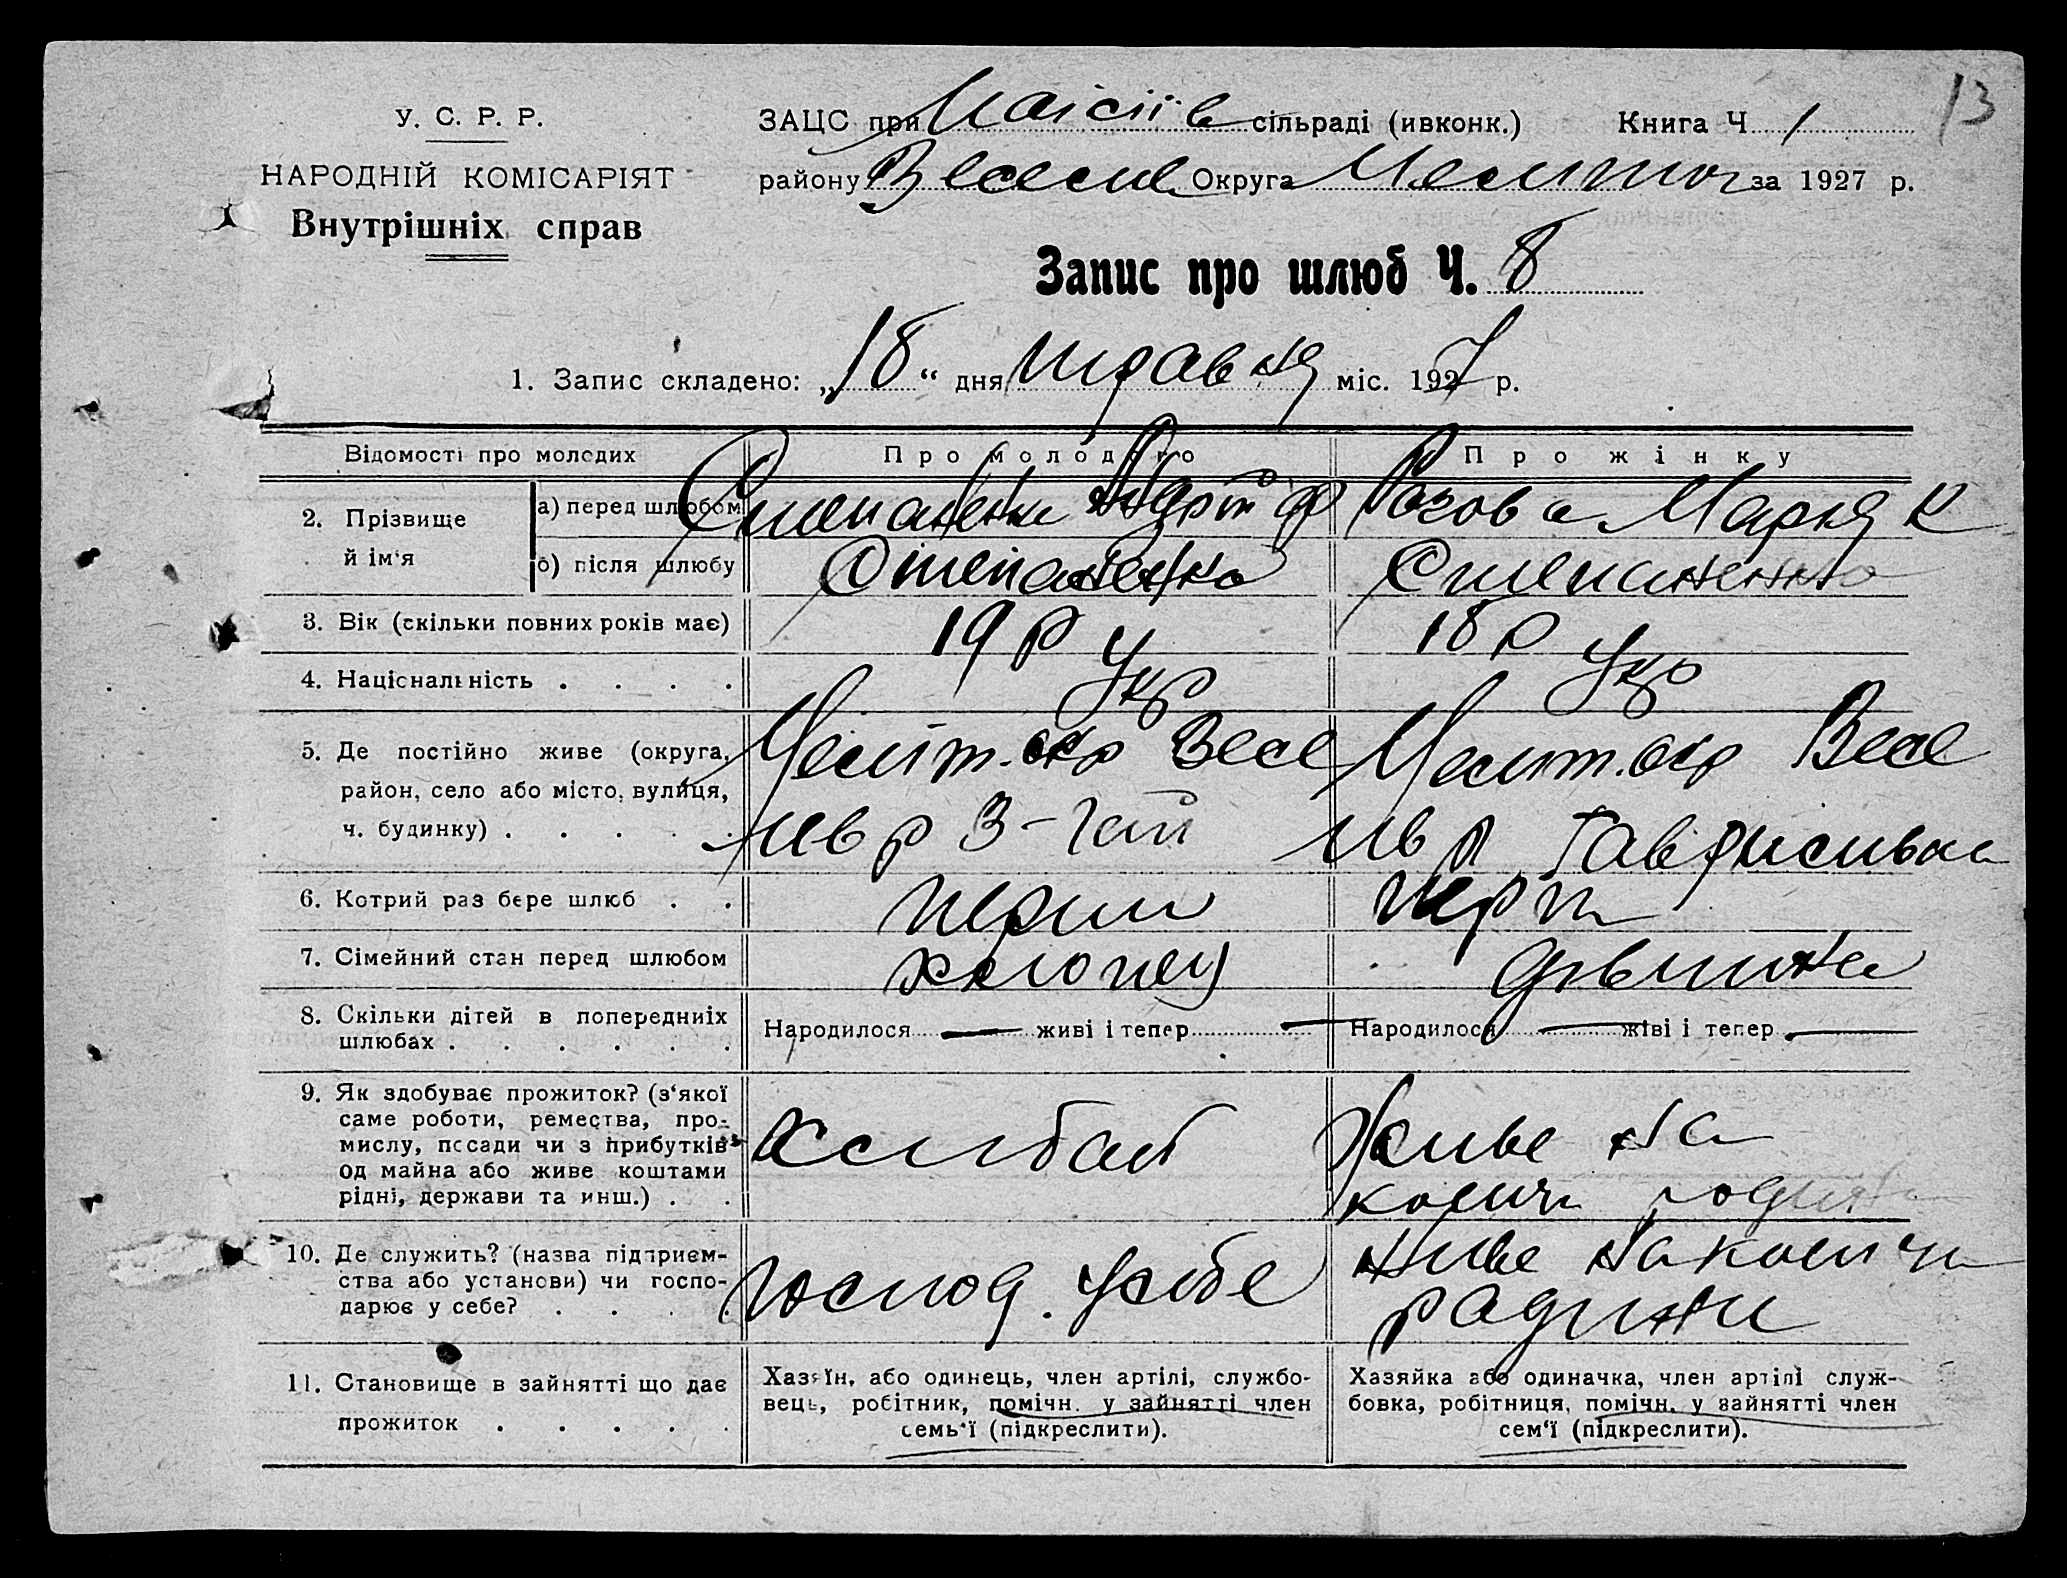 13
У. С. Р. Р.
НАРОДНІЙ КОМІСАРІЯТ
Внутрішніх справ
ЗАЦС при сільраді (ивконк.) Книга Ч 1
району Веселив Округа Мелитоп за 1927 р.
Запис про шлюб Ч. 8
1. Запис складено: „18“ дня травня міс. 1927 р.
Відомості про молодих Про молодого Про жінку
2. Прізвище й ім'я
а) перед шлюбом Степаненко Рогова Мария К
б) після шлюбу Степаненко Степаненко
3. Вік (скільки повних років має) 19 р 18 р
4. Національність . . . . Укр Укр
5. Де постійно живе (округа, район, село або місто, вулиця, ч. будинку) . . . . .
Мелит. окр Весе Мелит. окр Весе
лів р лів р
6. Котрий раз бере шлюб . . перш перш
7. Сімейний стан перед шлюбом хлопец дівчина
8. Скільки дітей в попередниіх шлюбах . . . . . .
Народилося — живі і тепер — Народилося — живі і тепер —
9. Як здобуває прожиток? (з'якої саме роботи, ремества, промислу, посади чи з прибутків од майна або живе коштами рідні, держави та инш.) . .
хлібоп Живе на
кошти родини
10. Де служить? (назва підприємства або установи) чи господарює у себе? . . . .
господ. у себе живе на кошти
родини
11. Становище в зайнятті що дає прожиток . . . . .
Хазяїн, або одинець, член артілі, службовець, робітник, помічн. у зайнятті член семь'ї (підкреслити).
Хазяйка або одиначка, член артілі службовка, робітниця, помічн. у зайнятті член сем'ї (підкреслити).